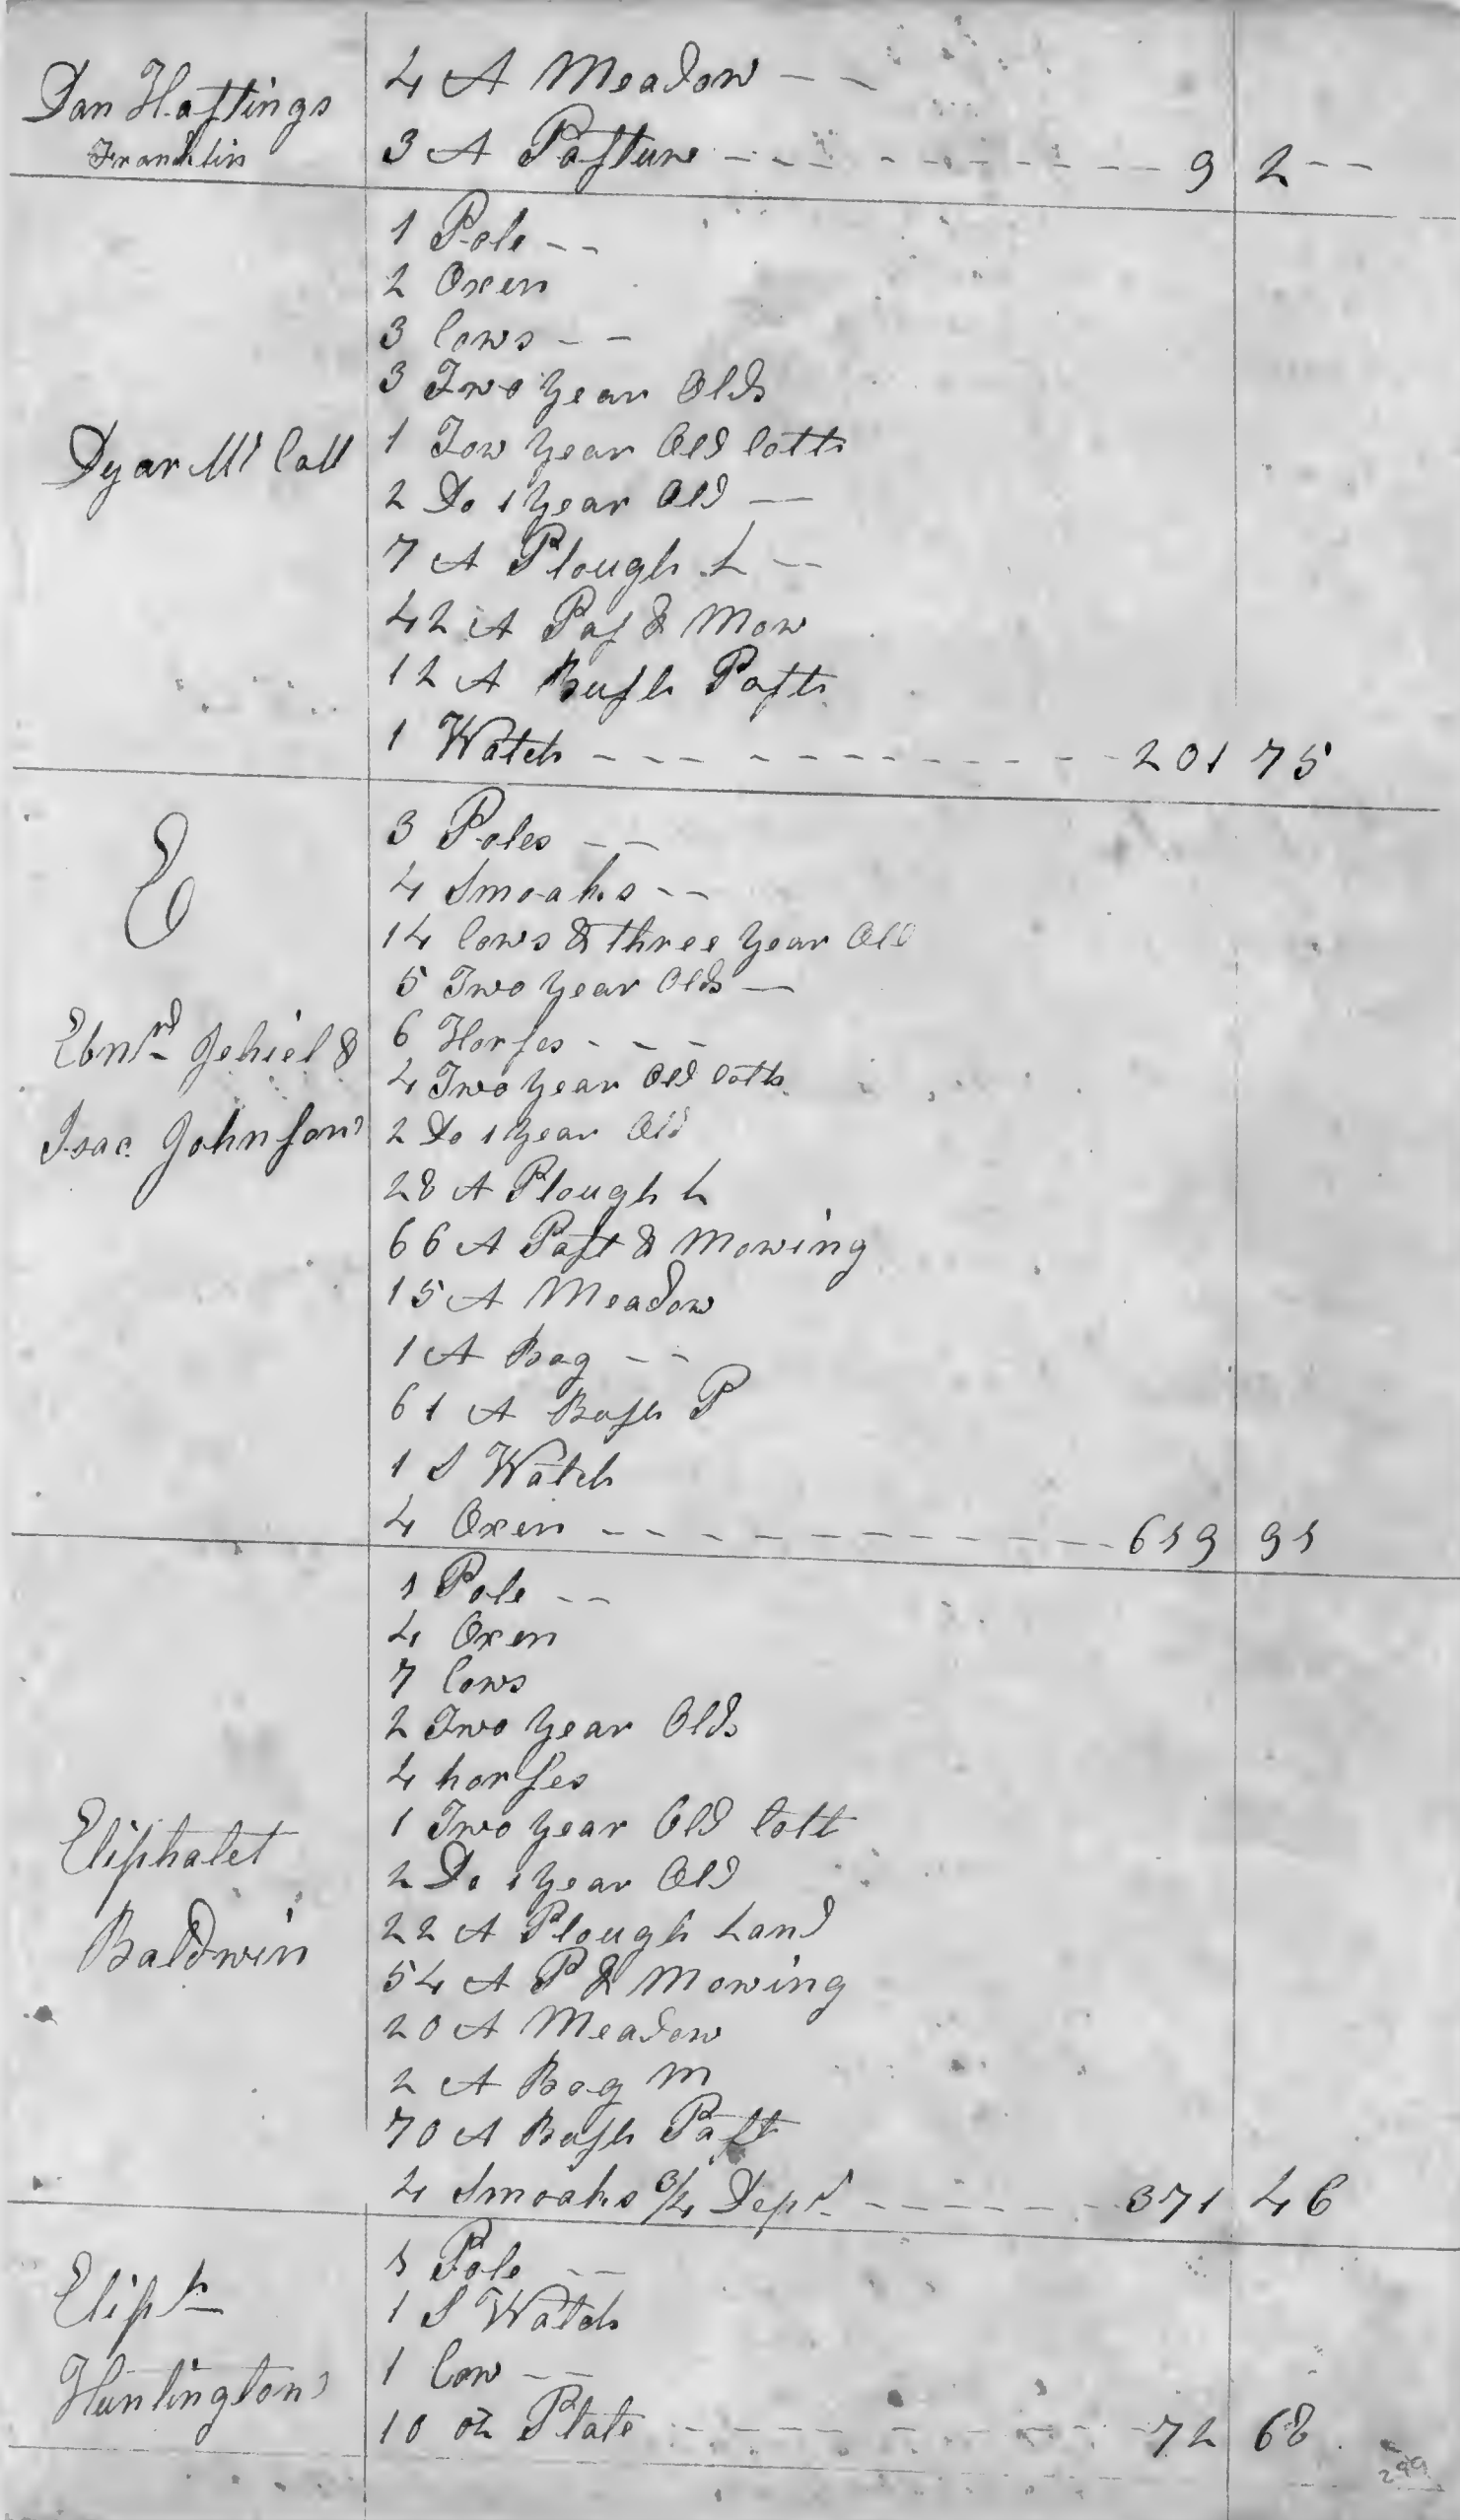 Dan Haſtings
Franklin
4 A Meadow - -
3 A Paſture - - - - - - - - 9 2 - -
Dyar Mc Call
1 Pole - -
2 Oxen
3 Cows - -
3 Two Year Olds
1 Tow Year Old Colts
2 Do 1 Year Old —
7 A Plough L - -
42 A Paſ & Mow
12 A Buſh Paſt
1 Watch - - - - - - - - 201 75
E
Ebnr Jehiel &
Isac Johnſons
3 Poles - -
4 Smoaks - -
14 Cows & three Year Old
5 Two Year Olds —
6 Horſes - - -
4 Two Year Old Colts
2 Do 1 Year Old
28 A Plough L
66 A Paſt & Mowing
15 A Meadow
1 A Bog - -
61 A Buſh P
1 S Watch
4 Oxen - - - - - - - - 619 91
Eliphalet
Baldwin
1 Pole - -
4 Oxen
7 Cows
2 Two Year Olds
4 horſes
1 Two Year Old Colt
2 Do 1 Year Old
22 A Plough Land
54 A P & Mowing
20 A Meadow
2 A Bog M
70 A Buſh Paſt
4 Smoaks 3/4 Depd - - - - - 371 46
Eliph
Huntington
1 Pole - -
1 S Watch
1 Cow - -
10 oz Plate - - - - - - - - 72 68
299